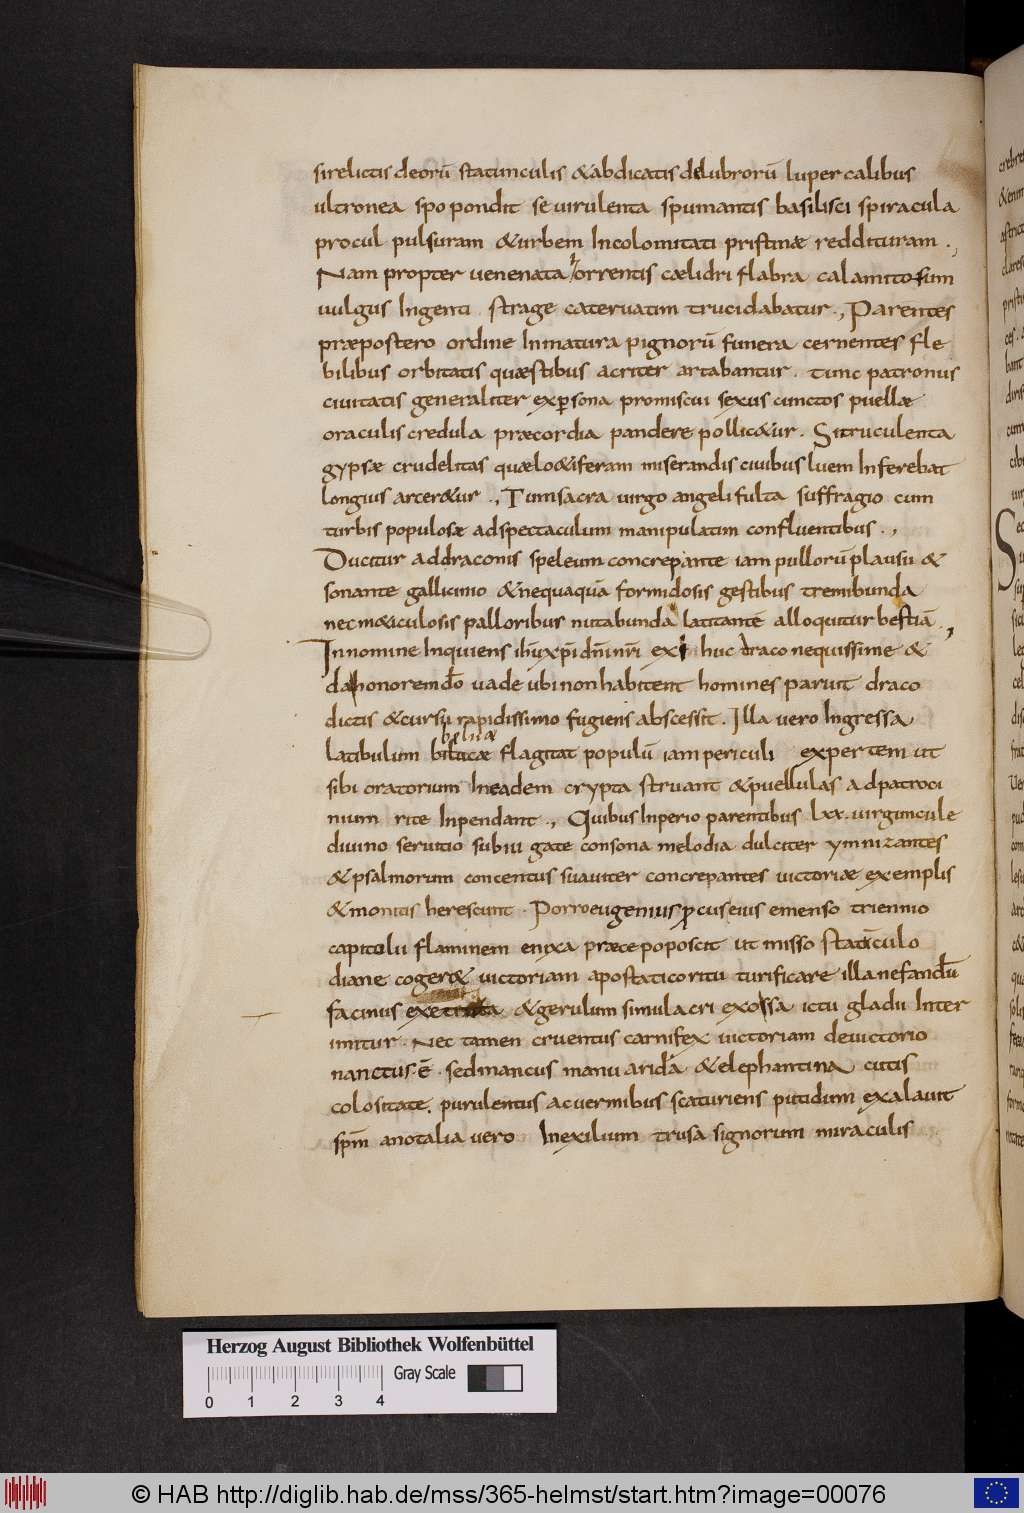 si relictis deorū statunculis & abdicatis delubrorū lupercalibus
ultronea spopondit se virulenta spumantis basilisci spiracula
procul pulsuram & urbem Incolomitati pristinæ reddituram .,
Nam propter uenenata horrentis cælidri flabra calamitosum
uulgus Ingenti strage cateruatim trucidabatur ., Parentes
præpostero ordine Inmatura pignorū funera cernentes fle
bilibus orbitatis quæstibus acriter artabantur . tunc patronus
ciuitatis generaliter ex persona promiscui sexus cunctos puellæ
oraculis credula præcordia pandere pollic&ur . Si truculenta
gypsæ crudelitas quæ lo&iferam miserandis ciuibus luem Inferebat
longius arcer&ur ., Tum sacra uirgo angeli fulta suffragio cum
turbis populosæ ad spectaculum manipulatim confluentibus .,
Ducitur ad draconis speleum concrepante iam pullorū plausu &
sonante gallicinio & nequaquā formidosis gestibus tremibunda
nec m&iculosis palloribus nutabunda latitantē alloquitur bestiā .,
In nomine Inquiens ihū xp̄i dn̄i nr̄i exi huc draco nequissime &
da honorem dō uade ubi non habitent homines paruit draco
dictis & cursu rapidissimo fugiens abscessit . Illa vero Ingressa
beluæ
latibulum biluæ flagitat populū iam periculi expertem ut
sibi oratorium In eadem crypta struant & puellulas ad patroci
nium rite Inpendant ., Quibus Inperio parentibus lxx . uirguncule
diuino seruitio subiugate consona melodia dulciter ymnizantes
& psalmorum concentus suauiter concrepantes uictoriæ exemplis
& monitis herescunt . Porro eugenius p cuseius emenso triennio
capitolii flaminem enixa præce poposcit ut misso staticulo
diane coger& uictoriam apostatico ritu turificare illa nefandū
facinus & gerulum simulacri exossa ictu gladii Inter
imitur . Nec tamen cruentus carnifex uictoriam de uictorio
nanctus ē . sed mancus manu arida & elephantina cutis
colositate . purulentus ac uermibus scaturiens putidum exalauit
spm̄ anotalia vero In exilium trusa signorum miraculis
Herzog August Bibliothek Wolfenbüttel
Gray Scale
0 1 2 3 4
© HAB http://diglib.hab.de/mss/365-helmst/start.htm?image=00076